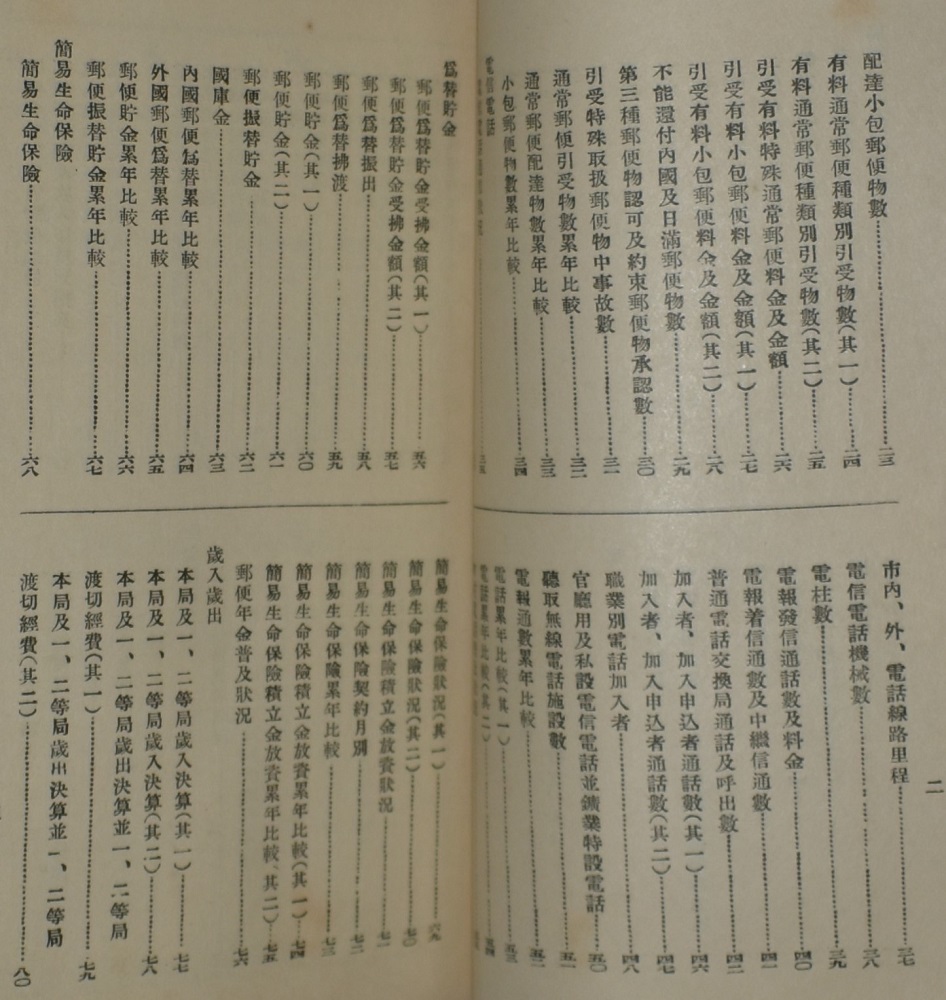 二
配達小包郵便物數……二三
有料通常郵便種類別引受物數(其一)……二四
有料通常郵便種類別引受物數(其二)……二五
引受有料特殊通常郵便料金及金額……二六
引受有料小包郵便料金及金額(其一)……二七
引受有料小包郵便料金及金額(其二)……二八
不能還付內國及日滿郵便物數……二九
第三種郵便物認可及約束郵便物承認數……三〇
引受特殊取扱郵便物中事故數……三一
通常郵便引受物數累年比較……三二
通常郵便配達物數累年比較……三三
小包郵便物數累年比較……三四
電信電話
市內、外、電話線路里程……三七
電信電話機械數……三八
電柱數……三九
電報發信通話數及料金……四〇
電報着信通數及中繼信通數……四一
普通電話交換局通話及呼出數……四二
加入者、加入申込者通話數(其一)……四六
加入者、加入申込者通話數(其二)……四七
職業別電話加入者……四八
官廳用及私設電信電話並鑛業特設電話……五〇
聽取無線電話施設數……五一
電報通數累年比較……五二
電話累年比較(其一)……五三
電話累年比較(其二)……五四
爲替貯金
郵便爲替貯金受拂金額(其一)……五六
郵便爲替貯金受拂金額(其二)……五七
郵便爲替振出……五八
郵便爲替拂渡……五九
郵便貯金(其一)……六〇
郵便貯金(其二)……六一
郵便振替貯金……六二
國庫金……六三
內國郵便爲替累年比較……六四
外國郵便爲替累年比較……六五
郵便貯金累年比較……六六
郵便振替貯金累年比較……六七
簡易生命保險
簡易生命保險……六八
簡易生命保險狀況(其一)……六九
簡易生命保險狀況(其二)……七〇
簡易生命保險積立金放資狀況……七一
簡易生命保險契約月別……七二
簡易生命保險累年比較……七三
簡易生命保險積立金放資累年比較(其一)……七四
簡易生命保險積立金放資累年比較(其二)……七五
郵便年金普及狀況……七六
歲入歲出
本局及一、二等局歲入決算(其一)……七七
本局及一、二等局歲入決算(其二)……七八
本局及一、二等局歲出決算並一、二等局
渡切經費(其一)……七九
本局及一、二等局歲出決算並一、二等局
渡切經費(其二)……八〇